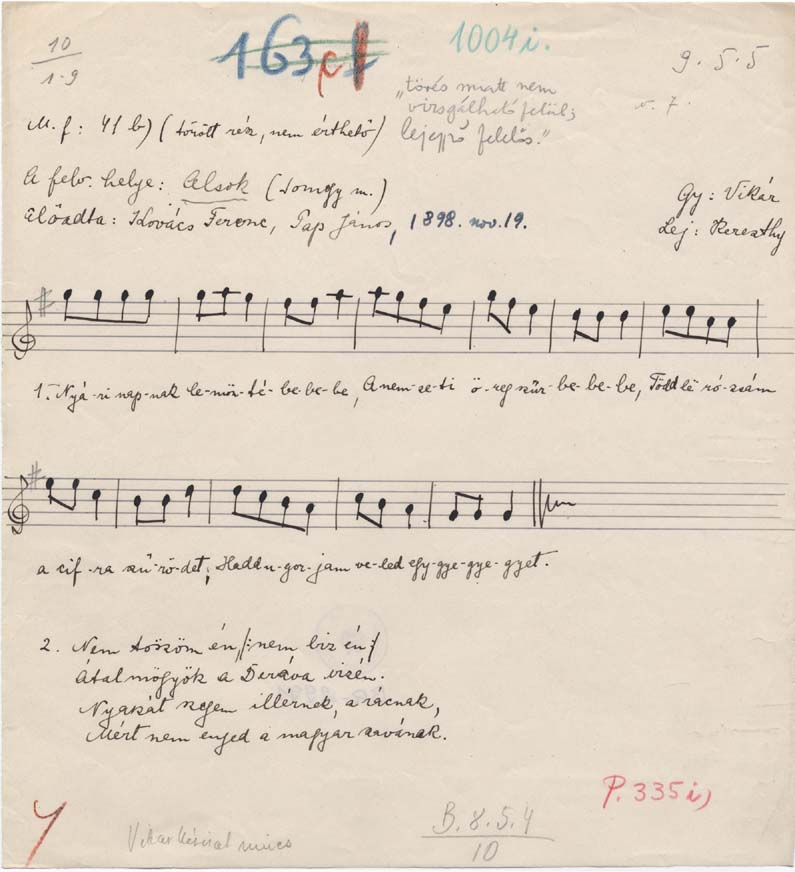 10
1-9
163
1004 i.
9. 5. 5
v. 7.
"törés miatt nem
vizsgálható felül;
lejegyző felelős."
M. f: 41 b) (törött rész, nem érthető)
A felv. helye: Alsok (Somogy m.)
Előadta: Kovács Ferenc, Pap János, 1898. nov. 19.
Gy: Vikár
Lej: Kereszthy
1. Nyá-ri nap-nak le-mön-té-be-be-be, A nem-ze-ti ö-reg szűr-be-be-be, Född lë ró-zsám
a cif-ra szű-rö-det, Hadd u-gor-jam ve-led egy-gye-gye-gyet.
2. Nem töszöm én, /:nem biz én:/
Átalmögyök a Deráva vizén.
Nyakát szegem illérnek, a rácnak,
Mért nem enged a magyar szavának.
P. 335 i)
Vikár kézirat nincs
B. 8. 5. 4
10